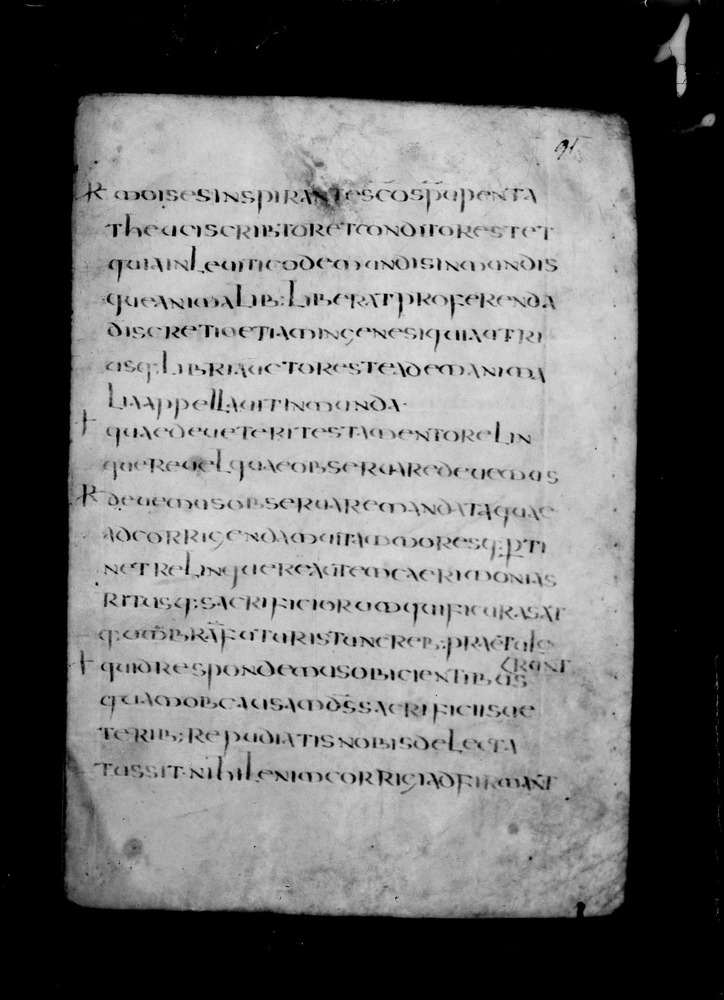 1
95
R moisesinspirantescōsp̄upenta
theuciscriptoretconditorestet
quiainleuiticodemundisinmundis
queanimalib;liberatproferenda
discretioetiamingenesiquiautri
usq;libriauctoresteademanima
liaappellauitinmunda·
+ quaedeueteritestamentorelin
querevelquaeobseruaredeuemus
R deuemusobseruaremandataquae
adcorrigendamuitammoresq;p̱ti
netrelinquereautemcaerimonias
ritusq;sacrificiorumquificurasat
q;umbrāfuturistuncreb;praetule
rant
+ quidrespondemusobicientibus
quamobcausamd̄ssacrificiisue
terib;repudiatisnobisdelecta
tussit·nihilenimcorrigiadfirmant